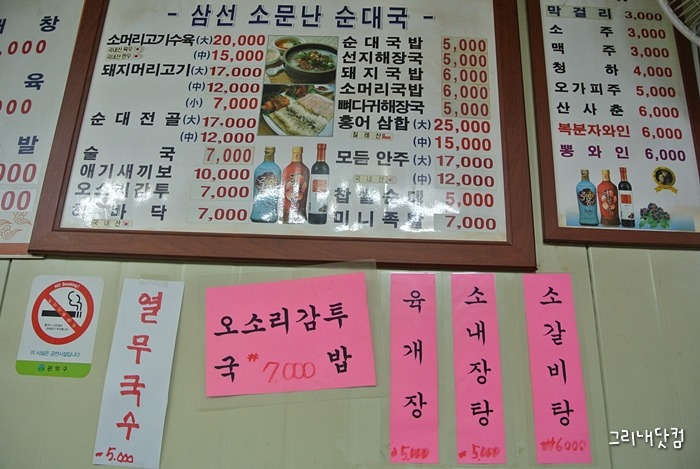 - 삼선 소문난 순대국 -
소머리고기수육 (大) 20,000
(中) 15,000
돼지머리고기 (大) 17,000
(中) 12,000
(小) 7,000
순대전골 (大) 17,000
(中) 12,000
술국 7,000
애기새끼보 10,000
오소리감투 7,000
바닥 7,000
국내산
순대국밥 5,000
선지해장국 5,000
돼지국밥 6,000
소머리국밥 6,000
뼈다귀해장국 6,000
홍어 삼합 (大) 25,000
칠레산
(中) 15,000
모듬 안주 (大) 17,000
국내산
(中) 12,000
찹쌀순대 5,000
미니족발 7,000
막걸리 3,000
소주 3,000
맥주 3,000
청하 4,000
오가피주 5,000
산사춘 6,000
복분자와인 6,000
뽕와인 6,000
창
육
발
NO Smoking!
이 시설은 금연시설입니다
관악구
열무국수
5,000
오소리감투
국밥
₩7,000
육개장
5,000
소내장탕
5,000
소갈비탕
₩6000
그리내닷컴